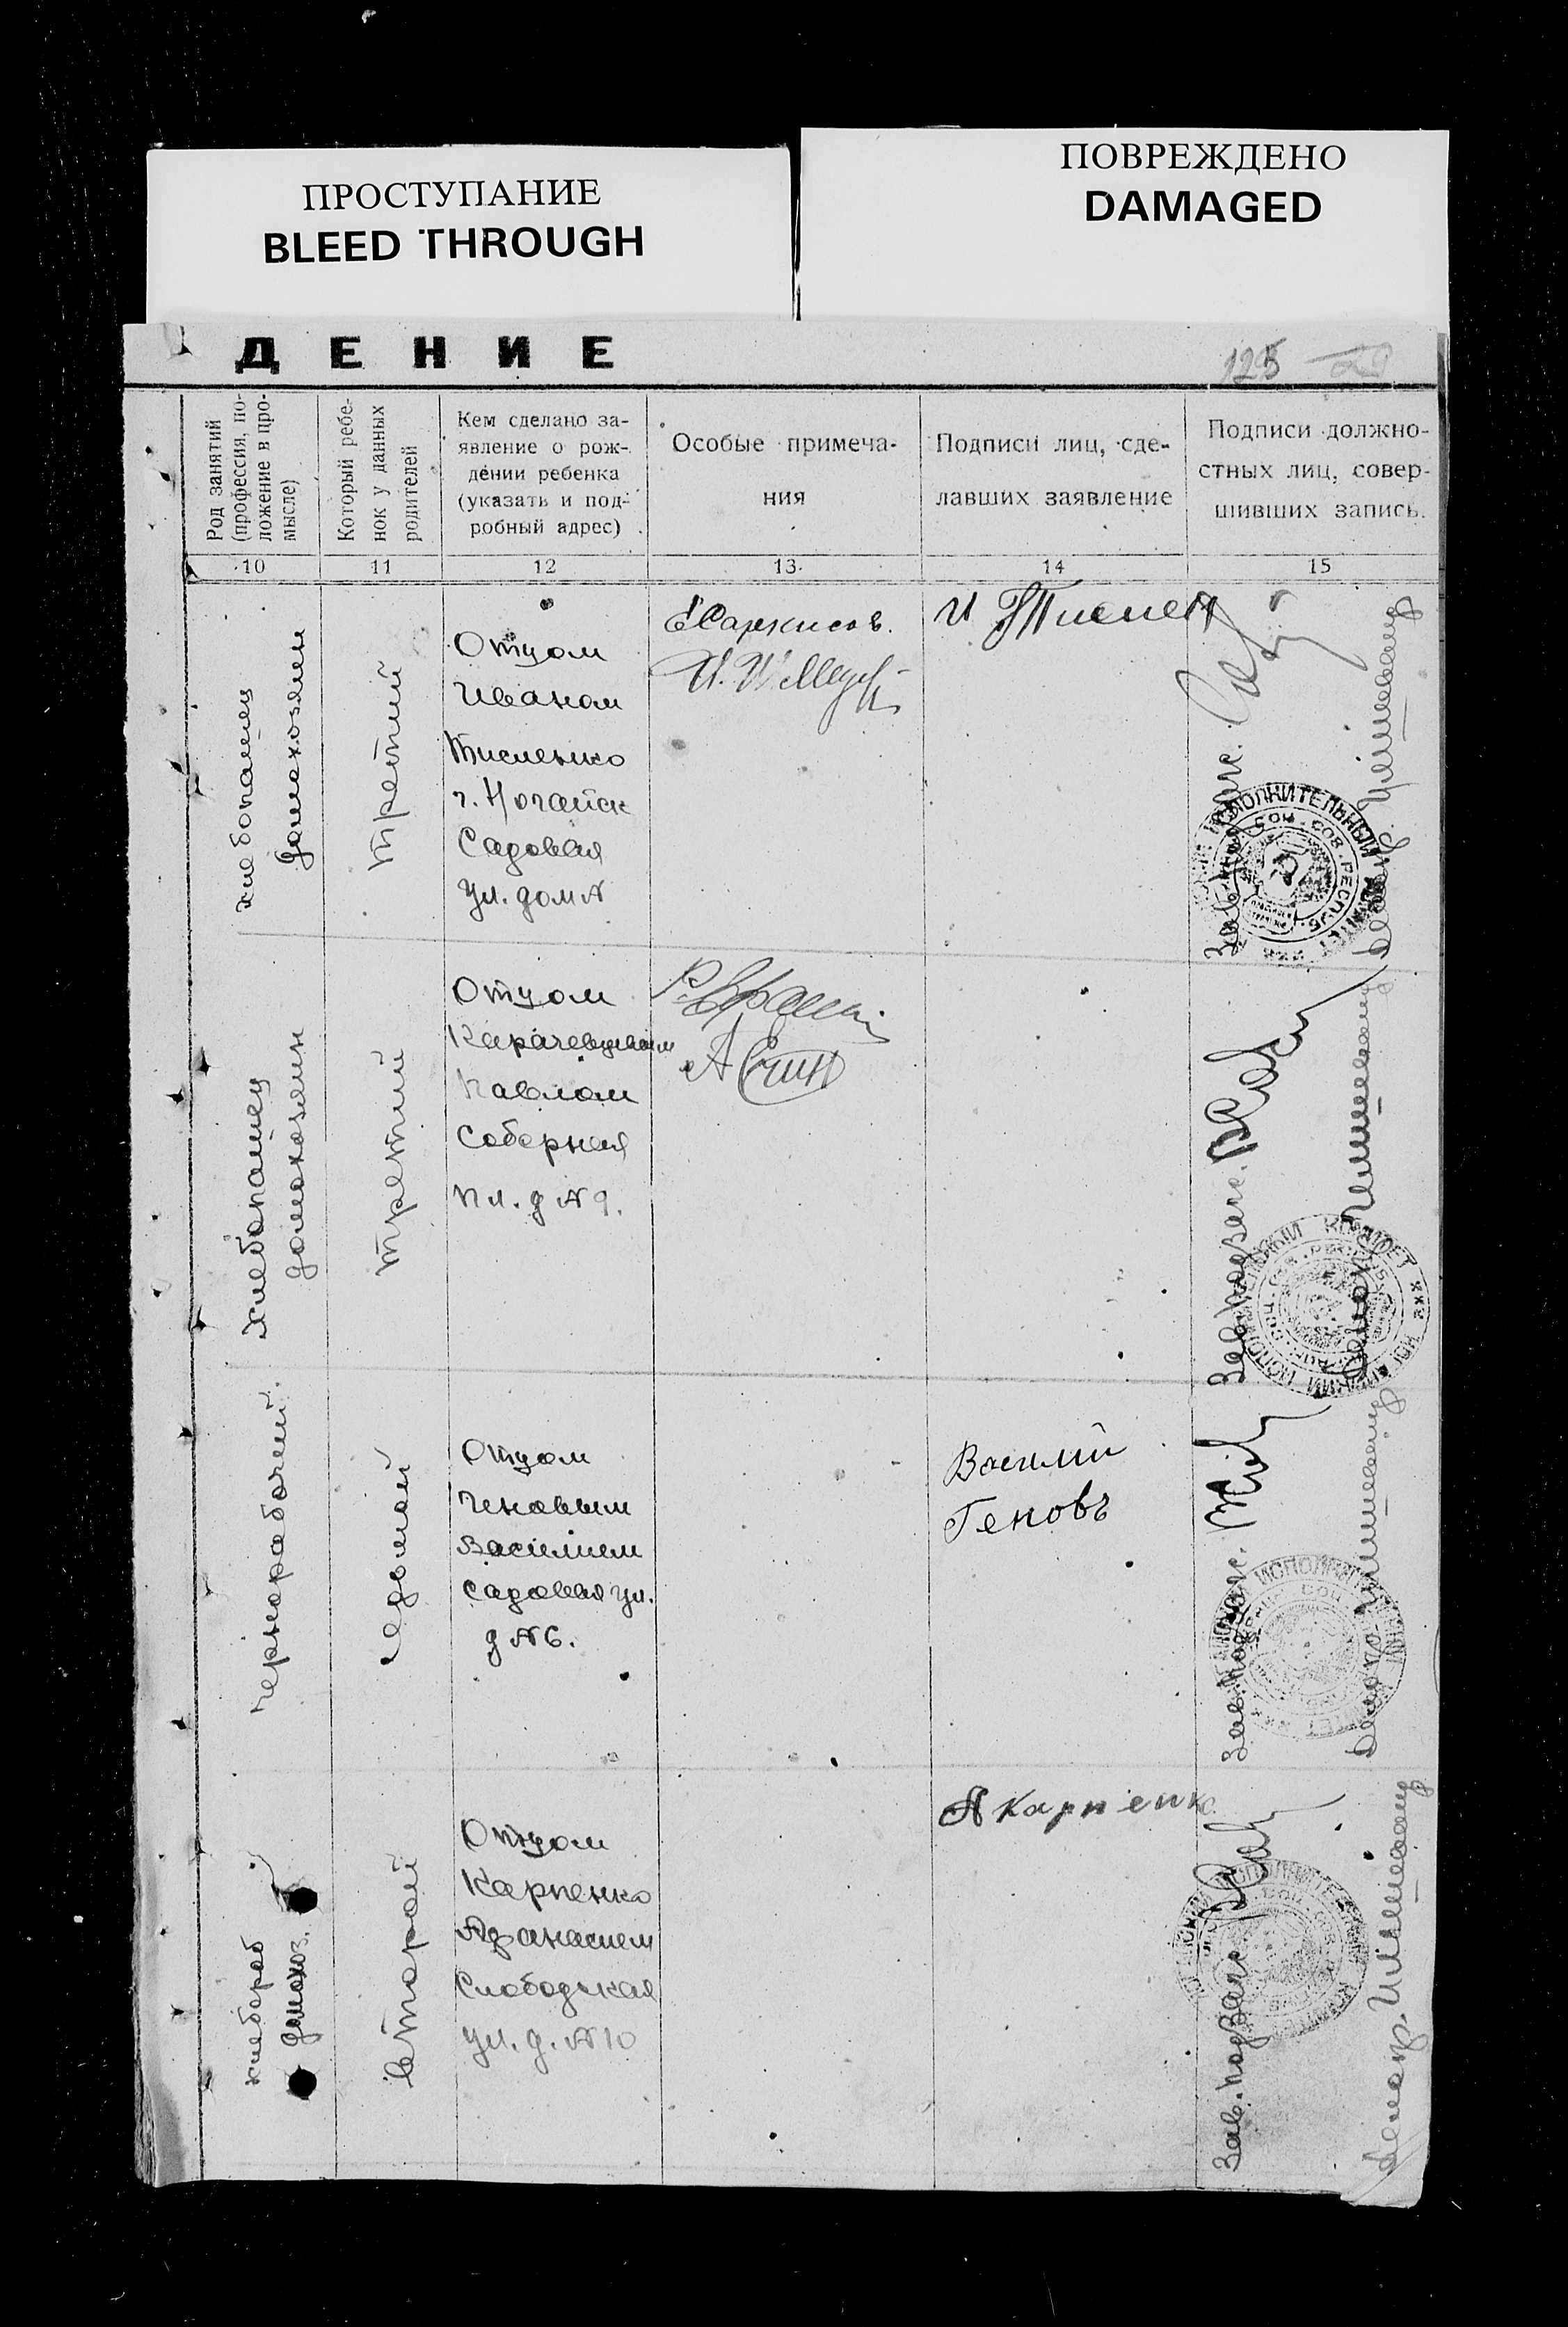 ПРОСТУПАНИЕ
BLEED THROUGH
ПОВРЕЖДЕНО
DAMAGED
ДЕНИЕ
125
Род занятий
(профессия, по-
ложение в про-
мысле)
Который ребе-
нок у данных
родителей
Кем сделано за-
явление о рож-
дении ребенка
(указать и под-
робный адрес)
Особые примеча-
ния
Подписи лиц, сде-
лавших заявление
Подписи должно-
стных лиц, совер-
шивших запись.
10
11
12
13
14
15
хлебопашец
домохозяин
третий
Отцом
Иваном
Тисленко
г. Ногайск
Садовая
ул. дом №
Е Саркисов.
И
Зав. подзагс.
Делопр.
ИСПОЛНИТЕЛЬНЫЙ
СОЦ. СОВ. РЕСПУБ.
хлебопашец
домохозяин
третий
Отцом
Карачевцевым
Павлом
Соборная
пл. д № 9.
Зав. подзагс.
Делопр.
КОМИТЕТ
чернорабочий.
седьмой
Отцом
Геновым
Василием
Садовая ул.
д № 6.
Василий
Геновъ
Зав. подзагс.
Делопр.
хлебороб
домохоз.
второй
Отцом
Карпенко
Афанасием
Слободская
ул. д. № 10
А Карпенко
Зав. подзагс
Делопр.